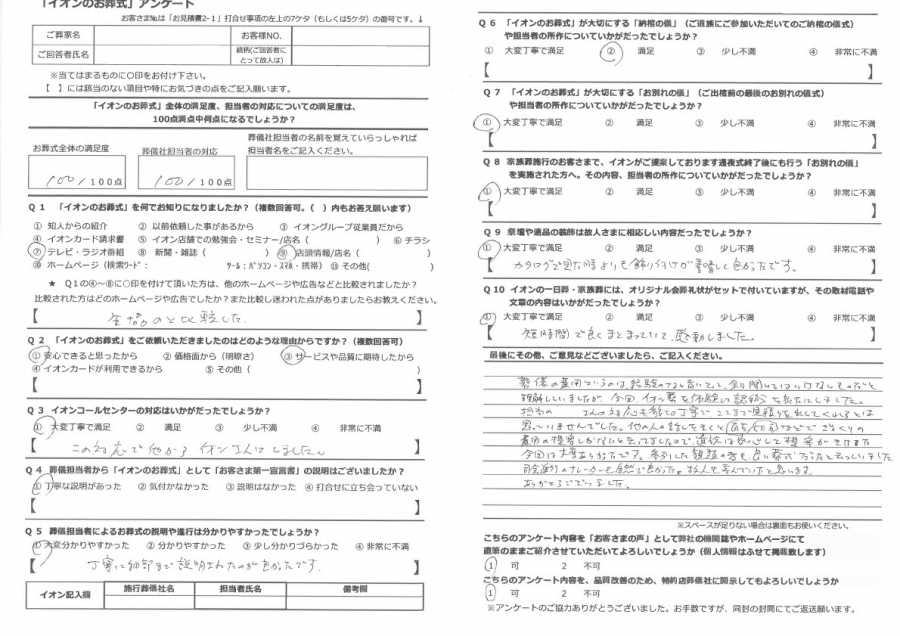 「イオンのお葬式」アンケート
お客さま№は「お見積書2-1」打合せ事項の左上の7ケタ（もしくは5ケタ）の番号です。↓
ご葬家名 お客様NO.
ご回答者氏名 続柄(ご回答者にとって故人は)
※当てはまるものに〇印をお付け下さい。
【 】には該当のない項目や特にお気づきの点をご記入願います。
「イオンのお葬式」全体の満足度、担当者の対応についての満足度は、
100点満点中何点になるでしょうか？
お葬式全体の満足度 葬儀社担当者の対応
葬儀社担当者の名前を覚えていらっしゃれば
担当者名をご記入ください。
100/100点 100/100点
Q 1 「イオンのお葬式」を何でお知りになりましたか？（複数回答可。( ）内もお答え願います）
① 知人からの紹介 ② 以前依頼した事があるから ③ イオングループ従業員だから
④ イオンカード請求書 ⑤ イオン店舗での勉強会・セミナー/店名（ ） ⑥ チラシ
⑦ テレビ・ラジオ番組 ⑧ 新聞・雑誌（ ） ⑨ 店頭情報/店名（ ）
⑩ ホームページ（検索ワード： ﾂｰﾙ：ﾊﾟｿｺﾝ・ｽﾏﾎ・携帯） ⑪ その他( )
★ Q１の④～⑧に〇印を付けて頂いた方は、他のホームページや広告などと比較されましたか？
比較された方はどのホームページや広告でしたか？また比較し迷われた点がありましたらお教えください。
【 生協のと比較した 】
Q 2 「イオンのお葬式」をご依頼いただきましたのはどのような理由からですか？（複数回答可）
① 安心できると思ったから ② 価格面から（明瞭さ） ③ サービスや品質に期待したから
④ イオンカードが利用できるから ⑤ その他（ ）
【 】
Q 3 イオンコールセンターの対応はいかがだったでしょうか？
① 大変丁寧で満足 ② 満足 ③ 少し不満 ④ 非常に不満
【 この対応で他からイオンさんにしました。 】
Q 4 葬儀担当者から「イオンのお葬式」として「お客さま第一宣言書」の説明はございましたか？
① 丁寧な説明があった ② 気付かなかった ③ 説明はなかった ④ 打合せに立ち会っていない
【 】
Q 5 葬儀担当者によるお葬式の説明や進行は分かりやすかったでしょうか？
① 大変分かりやすかった ② 分かりやすかった ③ 少し分かりづらかった ④ 非常に不満
【 丁寧に細部まで説明されたのが良かったです。 】
イオン記入欄 施行葬儀社名 担当者氏名 備考欄
Q 6 「イオンのお葬式」が大切にする「納棺の儀」（ご遺族にご参加いただいてのご納棺の儀式）
や担当者の所作についていかがだったでしょうか？
① 大変丁寧で満足 ② 満足 ③ 少し不満 ④ 非常に不満
【 】
Q 7 「イオンのお葬式」が大切にする「お別れの儀」（ご出棺前の最後のお別れの儀式）
や担当者の所作についていかがだったでしょうか？
① 大変丁寧で満足 ② 満足 ③ 少し不満 ④ 非常に不満
【 】
Q 8 家族葬施行のお客さまで、イオンがご提案しております通夜式終了後にも行う「お別れの儀」
を実施された方へ。その内容、担当者の所作についていかがだったでしょうか？
① 大変丁寧で満足 ② 満足 ③ 少し不満 ④ 非常に不満
【 】
Q 9 祭壇や遺品の装飾は故人さまに相応しい内容だったでしょうか？
① 大変丁寧で満足 ② 満足 ③ 少し不満 ④ 非常に不満
【 カタログで見た時よりも飾り付けが素晴しく良かったです。 】
Q 10 イオンの一日葬・家族葬には、オリジナル会葬礼状がセットで付いていますが、その取材電話や
文章の内容はいかがだったでしょうか？
① 大変丁寧で満足 ② 満足 ③ 少し不満 ④ 非常に不満
【 短時間で良くまとまっていて感動しました。 】
最後にその他、ご意見などございましたら、ご記入ください。
葬儀の費用というのは、経験のない者にとって
理解していましたが、今回、イオン葬を体験し認識を新たにしました。
担当の さんの対応も親切丁寧で、ここまで見積を出してくれるとは
思っていませんでした。他の人の話をきくと
今回は大変よかったです。参列した親族の者も良い葬式だったと云っていました
司会進行のナレーターも自然で良かった。故人も喜んでいたと思います。
ありがとうございました。
※スペースが足りない場合は裏面もお使いください。
こちらのアンケート内容を「お客さまの声」として弊社の機関誌やホームページにて
直筆のままご紹介させていただいてよろしいでしょうか（個人情報はふせて掲載致します）
1 可 2 不可
こちらのアンケート内容を、品質改善のため、特約店葬儀社に開示してもよろしいでしょうか
1 可 2 不可
※アンケートのご協力ありがとうございました。お手数ですが、同封の封筒にてご返送願います。